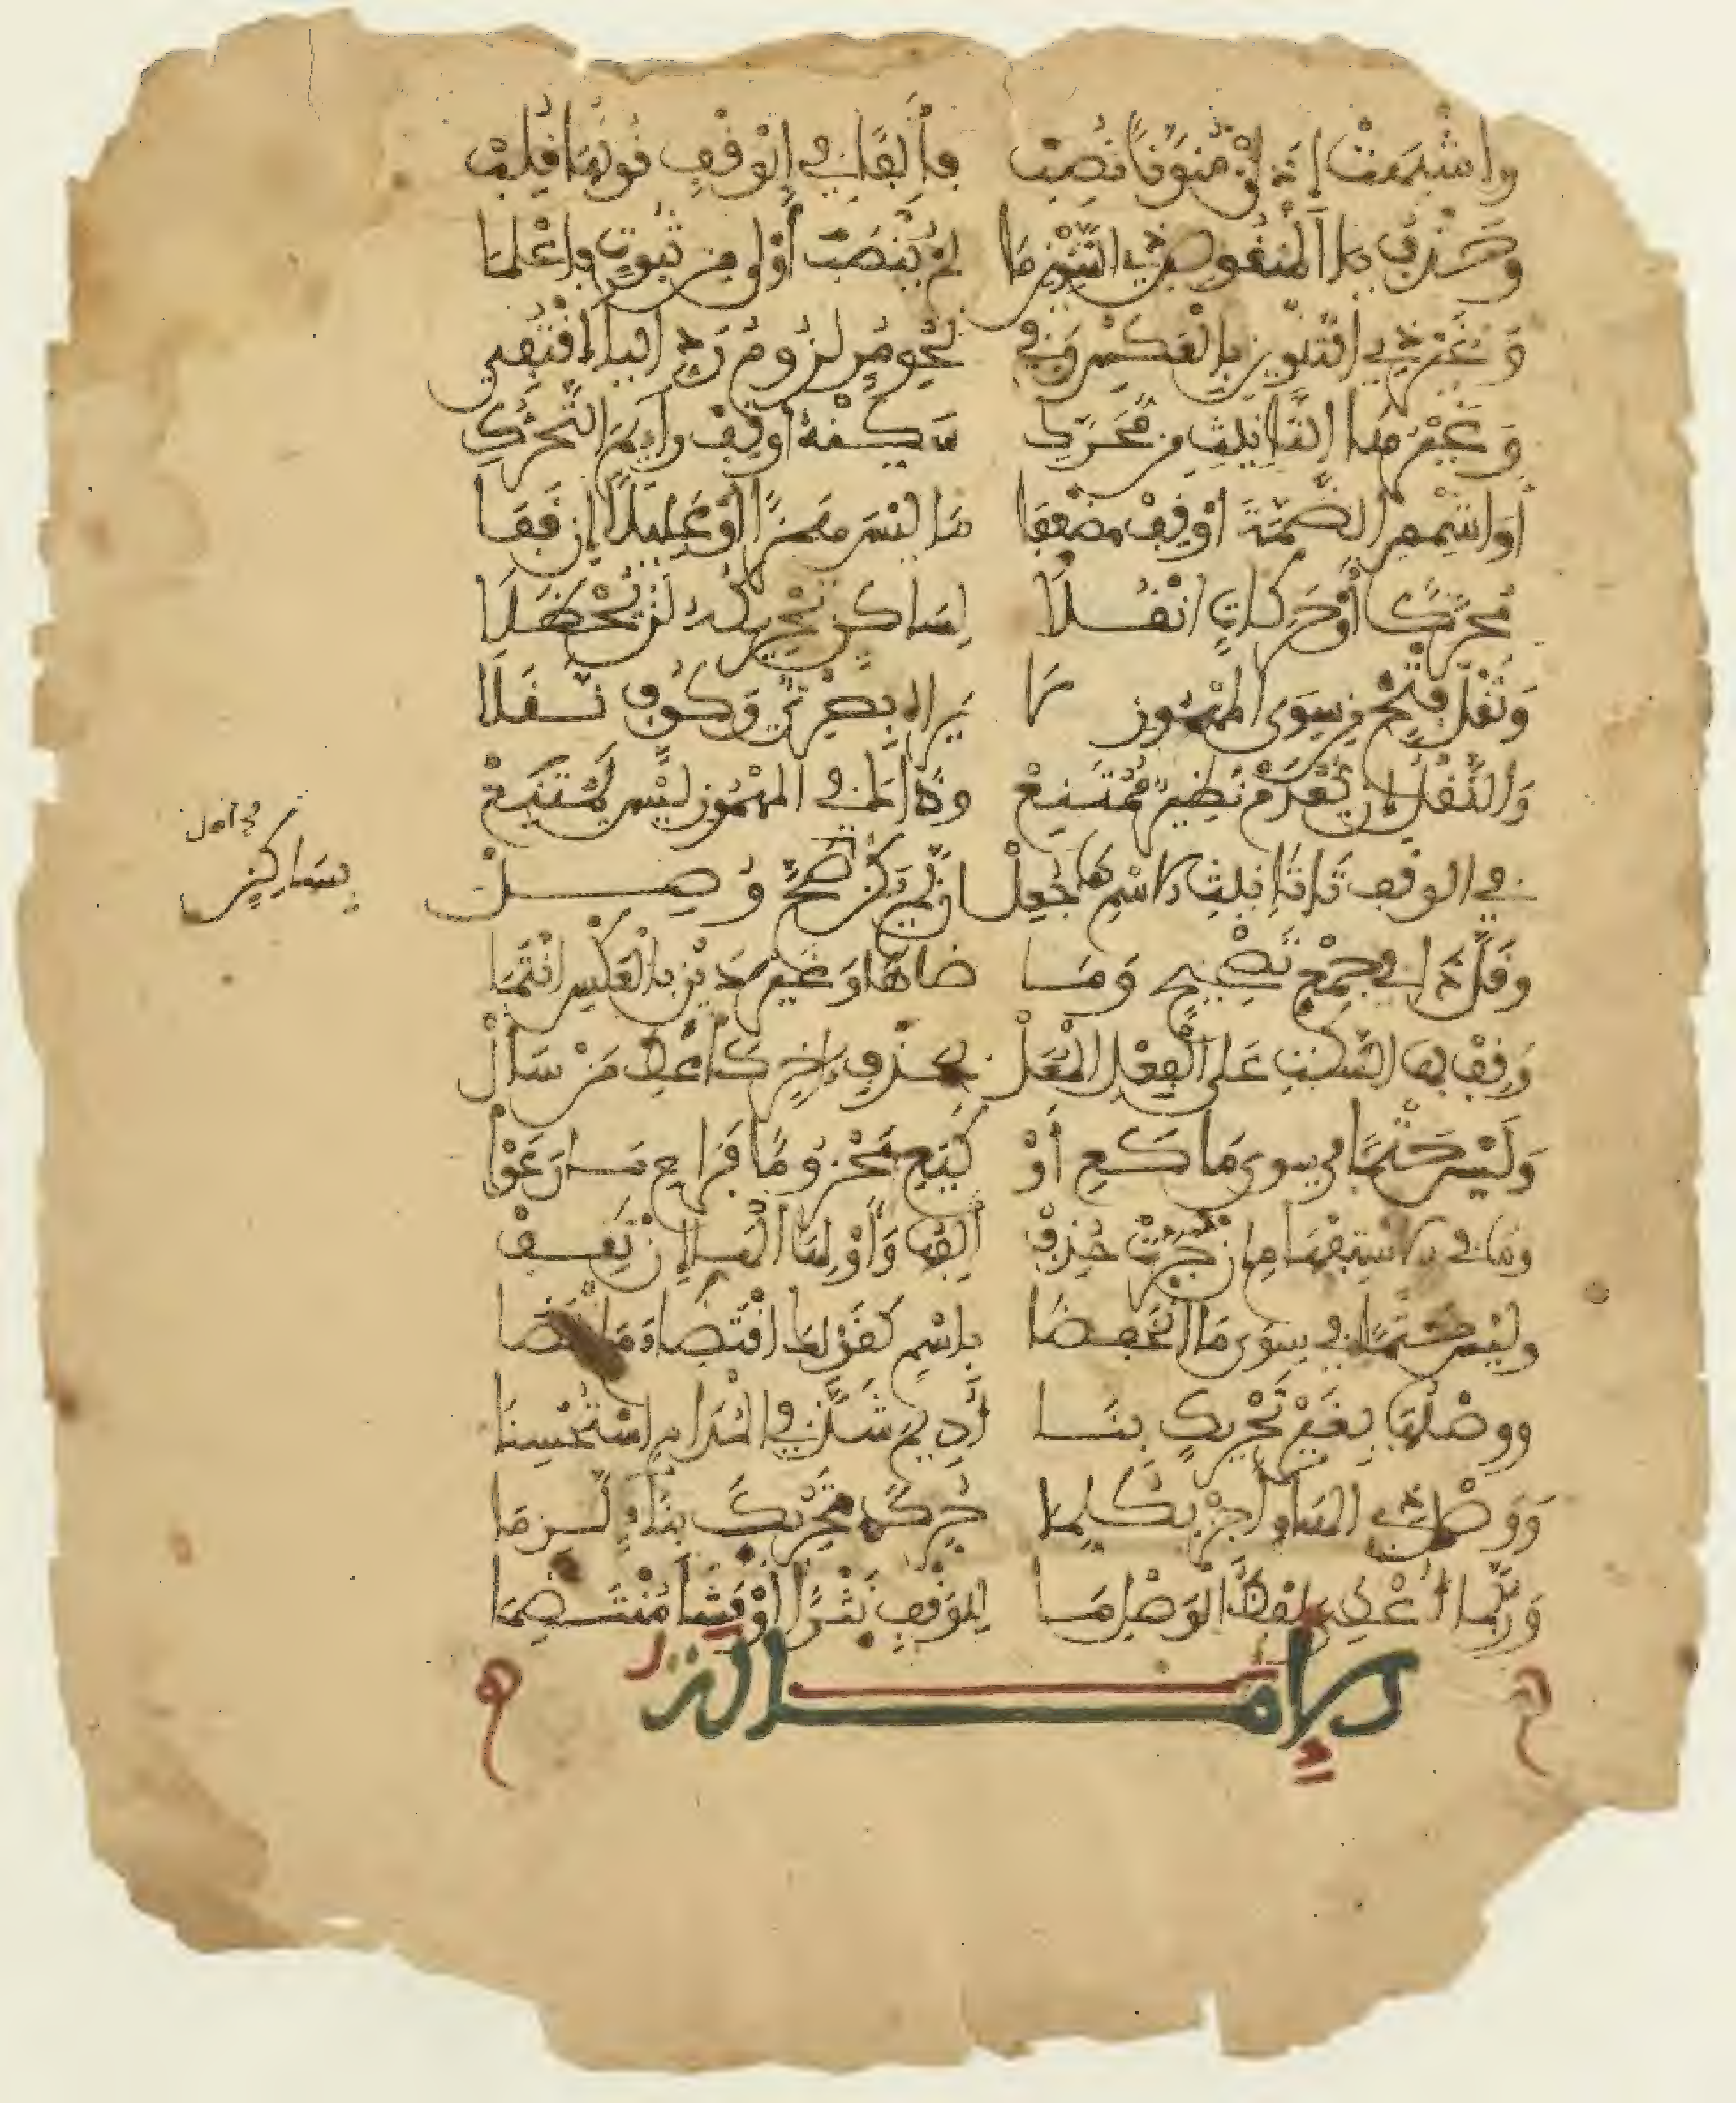 وَاشْبَهَتْ إِذًا مُنَوَّنًا نُصِبْ فَأَلِفًا فِي الْوَقْفِ نُونُهَا قُلِبْ
وَحَذْفُ يَا الْمَنْقُوصِ ذِي التَّنْوِينِ مَا لَمْ يُنْصَبَ أَوْلَى مِنْ ثُبُوتٍ فَاعْلَمَا
وَغَيْرُ ذِي التَّنْوِينِ بِالْعَكْسِ وَفِي نَحْوِ مُرٍ لُزُومُ رَدِّ الْيَا اقْتُفِي
وَغَيْرُ هَا التَّأْنِيثِ مِنْ مُحَرَّكِ سَكِّنْهُ أَوْ قِفْ رَائِمَ التَّحَرُّكِ
أَوْ اشْمِمِ الضَّمَّةَ أَوْ قِفْ مُضْعِفَا مَا لَيْسَ هَمْزًا أَوْ عَلِيلًا إِنْ قَفَا
مُحَرَّكًا أَوْ حَرَكَاتٍ انْقُلَا لِسَاكِنٍ تَحْرِيكُهُ لَنْ يُحْظَلَا
وَنَقْلُ فَتْحٍ مِنْ سِوَى الْمَهْمُوزِ لَا يَرَاهُ بَصْرِيٌّ وَكُوفٍ نَقَلَا
وَالنَّقْلُ إِنْ يُعْدَمْ نَظِيرٌ مُمْتَنِعْ وَذَاكَ فِي الْمَهْمُوزِ لَيْسَ يَمْتَنِعْ
فِي الْوَقْفِ تَا تَأْنِيثِ الِاسْمِ هَا جُعِلْ إِنْ لَمْ يَكُنْ صَحَّ وُصِلْ
بِسَاكِنٍ
وَقَلَّ ذَا فِي جَمْعِ تَصْحِيحٍ وَمَا ضَاهَا وَغَيْرُ ذَيْنِ بِالْعَكْسِ انْتَمَا
وَقِفْ بِهَا السَّكْتِ عَلَى الْفِعْلِ الْمُعَلْ بِحَذْفِ آخِرٍ كَأَعْطِ مَنْ سَأَلْ
وَلَيْسَ حَتْمًا فِي سِوَى مَا كَعِ أَوْ كَيَعِ مَجْزُومًا فَرَاعِ مَا رَعَوْا
وَمَا فِي الِاسْتِفْهَامِ إِنْ جُرَّتْ حُذِفْ أَلِفُهَا وَأَوْلِهَا الْهَا إِنْ تَقِفْ
وَلَيْسَ حَتْمًا فِي سِوَى مَا انْخَفَضَا بِاسْمٍ كَقَوْلِهَا اقْتِضَاءَ مَ اقْتَضَا
وَوَصْلُهَا بِغَيْرِ تَحْرِيكِ بِنَا أُدِيمَ شَذَّ فِي الْمُدَامِ اسْتُحْسِنَا
وَوَصْلَ ذِي الْهَاءِ أَجِزْ بِكُلِّ مَا حُرِّكَ تَحْرِيكَ بِنَاءٍ لَزِمَا
وَرُبَّمَا أُعْطِيَ لَفْظُ الْوَصْلِ مَا لِلْوَقْفِ نَثْرًا أَوْ فَشَا مُنْتَظِمَا
الْإِمَالَة